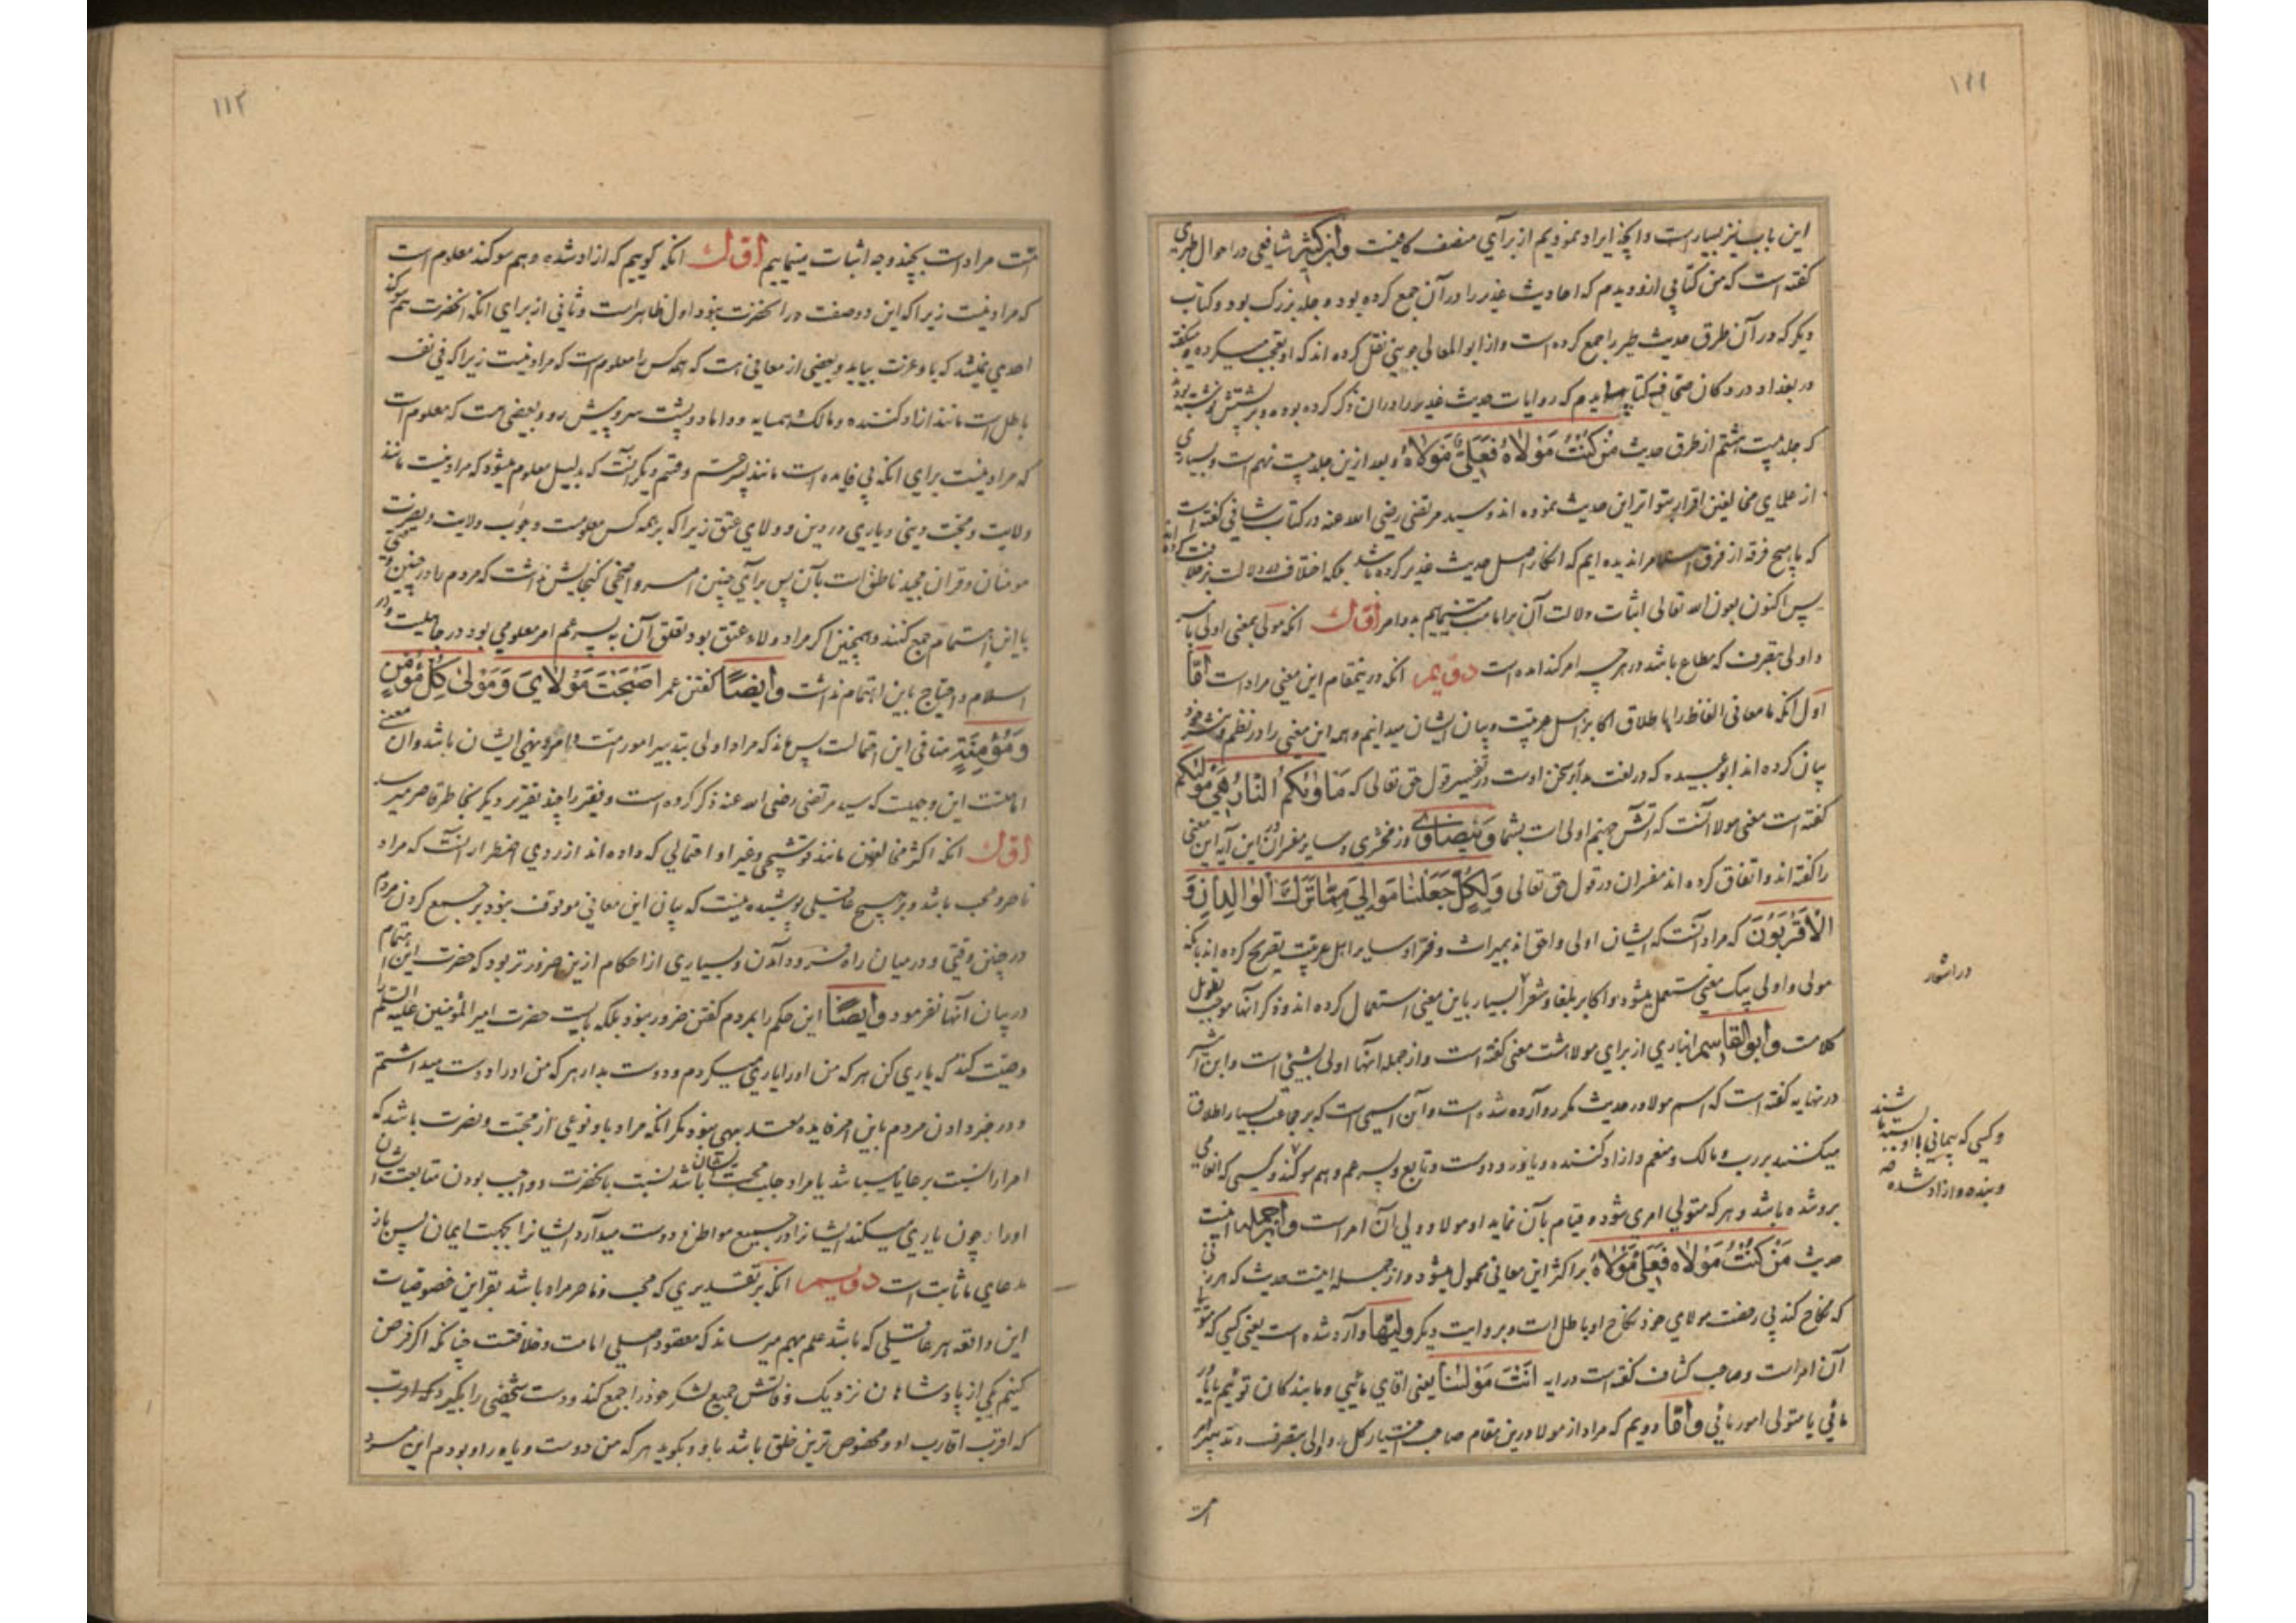 ۱۱۱
این باب نیز بسیار است و آنچه ایراد نمودیم از برای منصف کافیست و ابن کثیر شافعی در احوال طبری
گفته است که من کتابی ازو دیدم که احادیث غدیر را در آن جمع کرده بود دو جلد بزرگ بود و کتاب
دیگر که در آن طرق حدیث طیر را جمع کرده است و از ابو المعالی جوینی نقل کرده اند که او تعجب میکرده و میگفته
در بغداد در دکان صحافی کتابی دیدم که روایات حدیث غدیر را در آن ذکر کرده بود و بر پشتش نوشته بود
که جلد بیست هشتم از طرق حدیث مَنْ كُنْتُ مَوْلَاهُ فَعَلِيٌّ مَوْلَاهُ و بعد ازین جلد بیست نهم است و بسیاری
از علمای مخالفین اقرار بتواتر این حدیث نموده اند و سید مرتضی رضی الله عنه در کتاب شافی گفته است
که ما هیچ فرقه از فرق اسلام را ندیده ایم که انکار اصل حدیث غدیر کرده باشد بلکه اختلاف در دلالت بر خلافت کرده اند
پس اکنون بعون الله تعالی اثبات دلالت آن بر امامت مینماییم بدو امر اول آنکه مولی بمعنی اولی بامر
و اولی بتصرف که مطاع باشد در هر چه امر کند آمده است دویم آنکه درینمقام این معنی مراد است اما
اول آنکه ما معانی الفاظ را باطلاق اکابر اهل عربیت و بیان ایشان میدانیم و همه این معنی را در نظم و نثر خود
بیان کرده اند ابو عبیده که در لغت مدار سخن اوست در تفسیر قول حق تعالی که مَأْوٰىكُمُ النَّارُ هِيَ مَوْلٰىكُمْ
گفته است معنی مولا آنست که آتش جهنم اولی است بشما و بیضاوی و زمخشری و سایر مفسران در این آیه این معنی
را گفته اند و اتفاق کرده اند مفسران در قول حق تعالی وَلِكُلٍّ جَعَلْنَا مَوَالِيَ مِمَّا تَرَكَ الْوَالِدَانِ وَ
الْأَقْرَبُونَ که مراد آنست که ایشان اولی و احق اند بمیراث و فراء و سایر اهل عربیت تصریح کرده اند بانکه
مولی و اولی بیک معنی مستعمل میشود و اکابر بلغا و شعرا بسیار باین معنی استعمال کرده اند و ذکر آنها موجب تطویل
کلامست و ابو القاسم انباری از برای مولا هشت معنی گفته است و از جمله آنها اولی بشیئی است و ابن اثیر
در نهایه گفته است که اسم مولا در حدیث مکرر وارد شده است و آن اسمی است که بر جماعت بسیار اطلاق
میکنند بر رب و مالک و منعم و آزاد کننده و یاور و دوست و تابع و پسر عم و هم سوگند و کسی که انعامی
برو شده باشد و هر که متولی امری شود و قیام بآن نماید او مولا و ولی آن امر است و از جمله اینست
حدیث مَنْ كُنْتُ مَوْلَاهُ فَعَلِيٌّ مَوْلَاهُ بر اکثر این معانی محمول میشود و از جمله اینست حدیث که هر زنی
که نکاح کند بی رخصت مولای خود نکاح او باطل است و بروایت دیگر ولیّها وارد شده است یعنی کسی که متولی
آن امر است و صاحب کشاف گفته است در آیه اَنْتَ مَوْلٰنَا یعنی آقای مائی و ما بندگان توئیم یا یاور
مائی یا متولی امور مائی و اما دویم که مراد از مولا درین مقام صاحب اختیار کل و اولی بتصرف و تدبیر امور
در اشعار
و کسی که پیمانی با او بسته باشند
و بنده و آزاد شده صح
امت
۱۱۲
امت مراد است بچند وجه اثبات مینماییم اول آنکه گوییم که آزاد شده و هم سوگند معلوم است
که مراد نیست زیرا که این دو صفت در آنحضرت نبود اول ظاهر است و ثانی از برای آنکه آنحضرت هم سوگند
احدی نمیشد که باو عزت بیابد و بعضی از معانی هست که همه کس را معلوم است که مراد نیست زیرا که فی نفسه
باطل است مانند آزاد کننده و مالک و همسایه و داماد و پشت سر و پیش رو و بعضی هست که معلوم است
که مراد نیست برای آنکه بی فایده است مانند پسر عم و قسم دیگر آنست که بدلیل معلوم میشود که مراد نیست مانند
ولایت و محبت دینی و یاری در دین و ولای عتق زیرا که بر همه کس معلومست وجوب ولایت و نصرت
مومنان و قرآن مجید ناطق است بآن پس برای چنین امر واضحی گنجایش نداشت که مردم را در چنین وقتی
با این اهتمام جمع کنند و همچنین اگر مراد ولاء عتق بود تعلق آن به پسر عم امر معلومی بود در جاهلیت و در
اسلام و احتیاج باین اهتمام نداشت و ایضاً گفتن عمر اَصْبَحْتَ مَوْلَايَ وَمَوْلٰى كُلِّ مُؤْمِنٍ
وَمُؤْمِنَةٍ منافی این احتمالست پس ماند که مراد اولی بتدبیر امور امت و امر و نهی ایشان باشد و آن معنی
امامتست این وجهیست که سید مرتضی رضی الله عنه ذکر کرده است و فقیر را چند تقریر دیگر بخاطر قاصر میرسد
اول آنکه اکثر مخالفین مانند قوشچی و غیر او احتمالی که داده اند از روی اضطرار آنست که مراد
ناصر و محب باشد و بر هیچ عاقلی پوشیده نیست که بیان این معانی موقوف نبود بر جمع کردن مردم
در چنین وقتی و در میان راه فرود آمدن و بسیاری از احکام ازین ضرورتر بود که حضرت این اهتمام
در بیان آنها نفرمود و ایضاً این حکم را بمردم گفتن ضرور نبود بلکه بایست حضرت امیر المؤمنین علیه السلام را
وصیت کند که یاری کن هر که من او را یاری میکردم و دوست بدار هر که من او را دوست میداشتم
و در خبر دادن مردم باین امر فایده معتد بهی نبود مگر آنکه مراد باو نوعی از محبت و نصرت باشد که
امرا را نسبت برعایا میباشد یا مراد جلب محبت ایشان باشد نسبت بآنحضرت و واجب بودن متابعت ایشان
او را چون یاری میکند ایشانرا در جمیع مواطن و دوست میدارد ایشانرا بجهت ایمان پس باز
مدعای ما ثابت است دویم آنکه بر تقدیری که محب و ناصر مراد باشد بقراین خصوصیات
این واقعه هر عاقلی که باشد علم بهم میرساند که مقصود اصلی امامت و خلافتست چنانکه اگر فرض
کنیم یکی از پادشاهان نزدیک وفاتش جمیع لشکر خود را جمع کند و دست شخصی را بگیرد
که اقرب اقارب او و مخصوص ترین خلق باشد باو و بگوید هر که من دوست و یاور او بودم این مرد